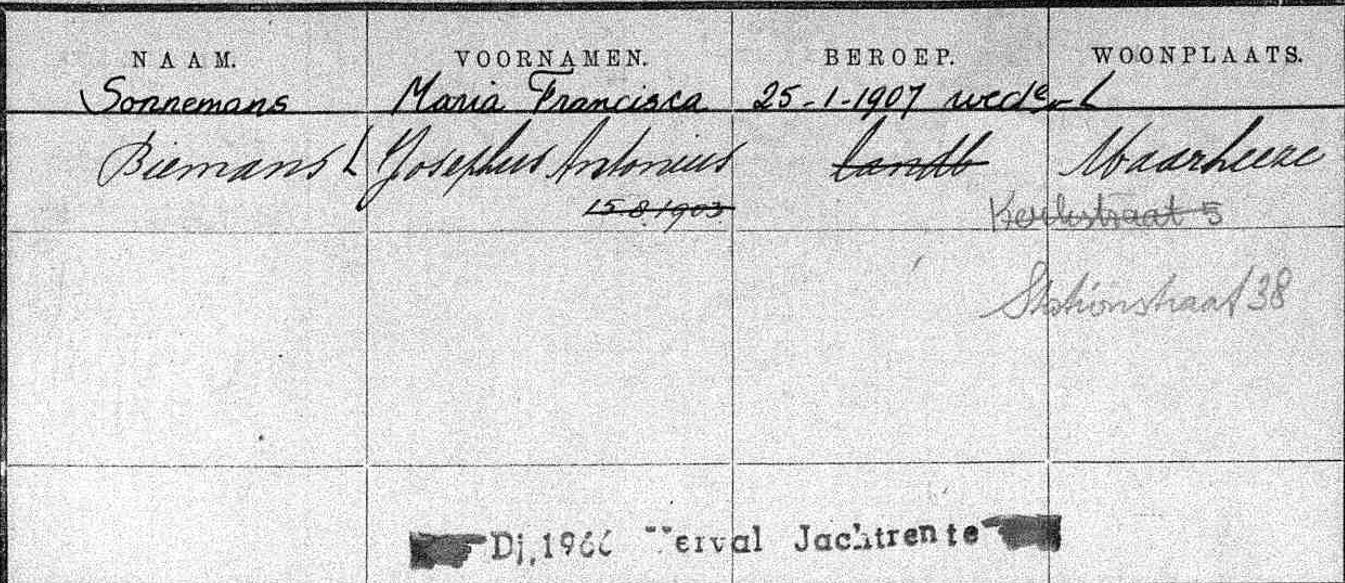 NAAM. VOORNAMEN. BEROEP. WOONPLAATS.
Sonnemans Maria Francisca 25-1-1907 wede
Biemans Josephus Antonius landb Maarheeze
15.8.1903 Kerkstraat 5
Stationstraat 38
Dj.1966 Verval Jachtrente